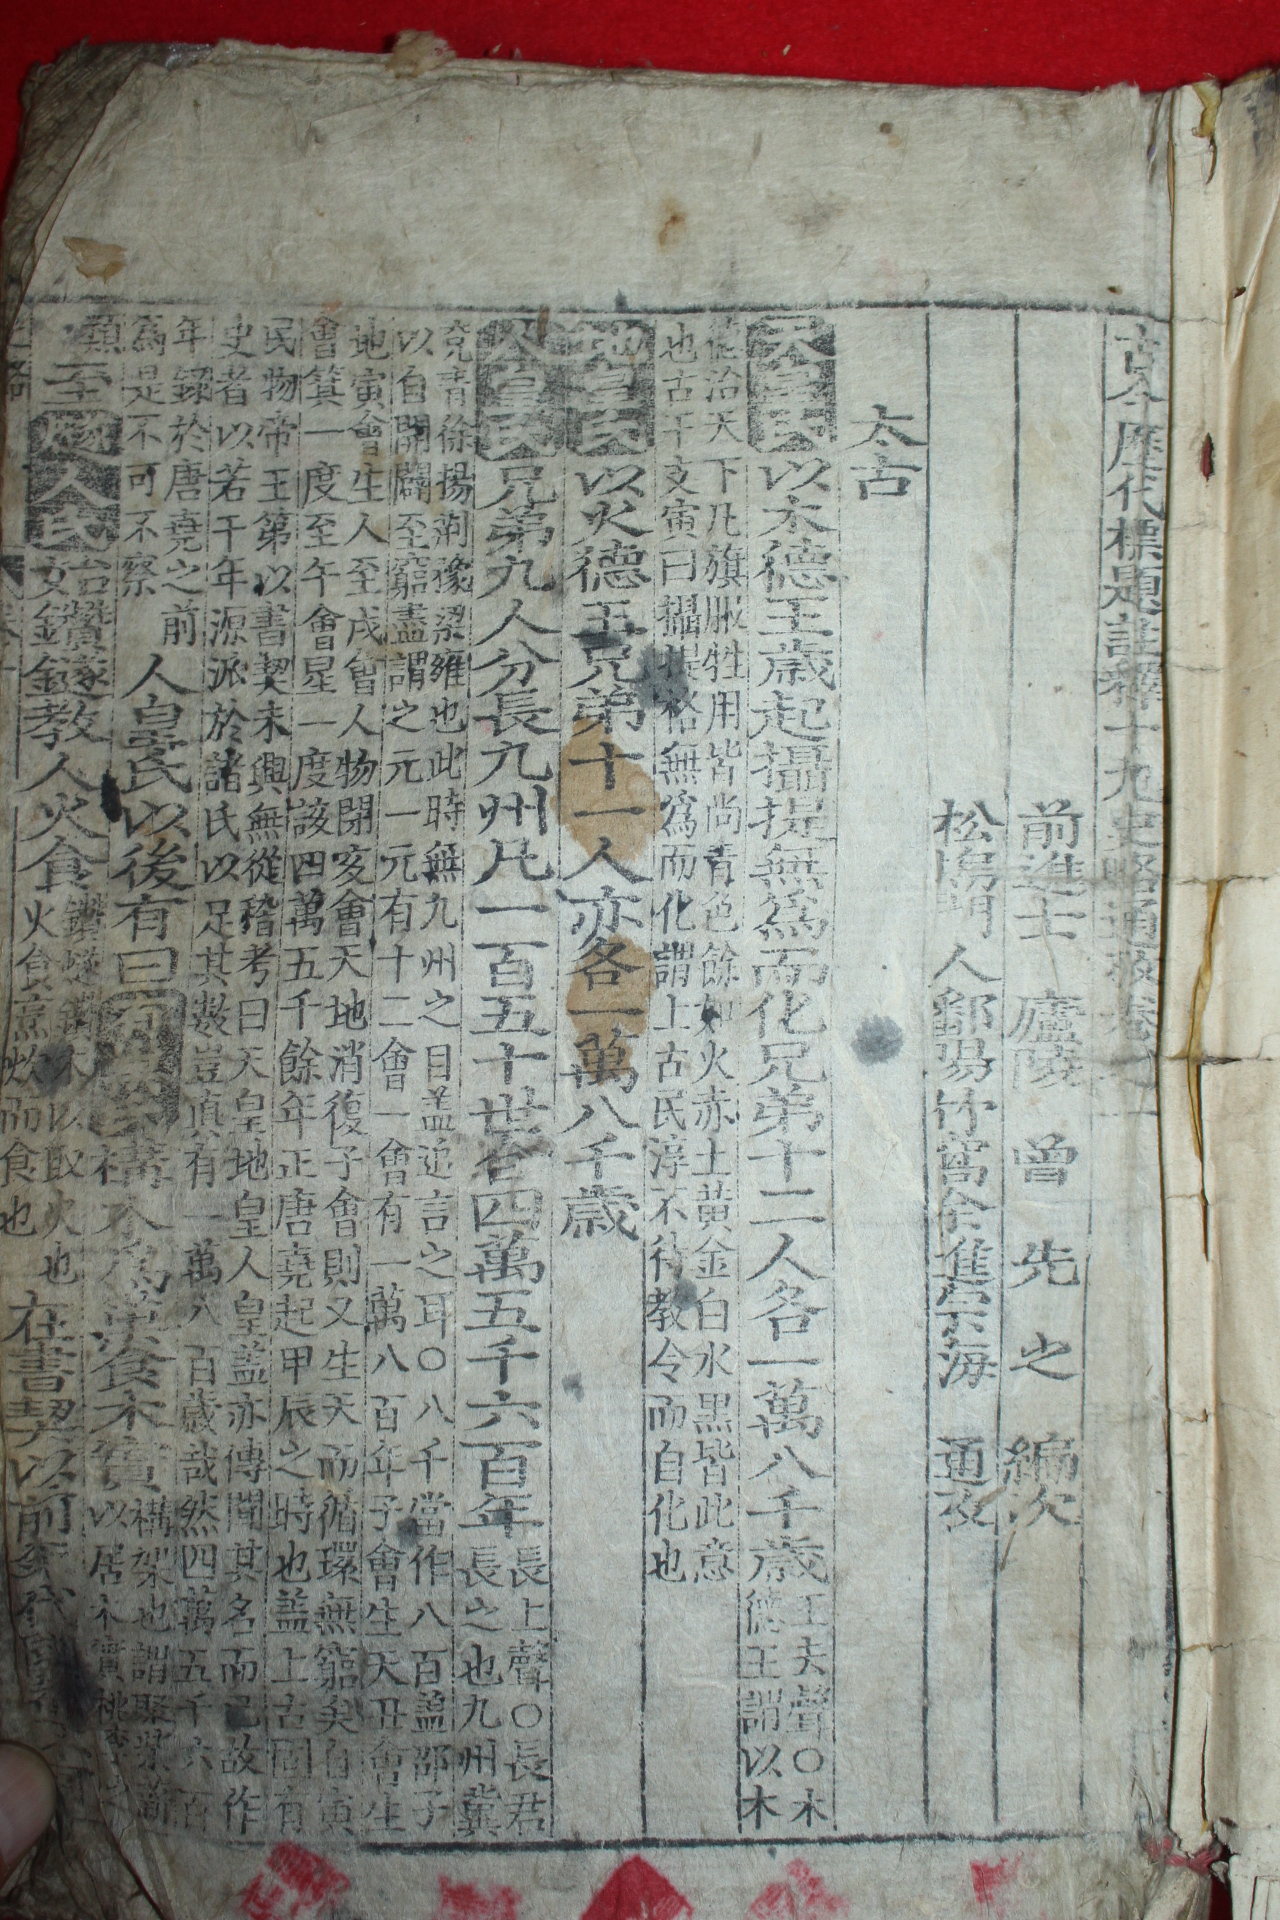 古今歷代標題註釋十九史略通攷卷之一
前進士 廬陵 曾 先 之 編次
松塢門人鄱陽竹窩余進宗海 通攷
太古
天皇氏以木德王歲起攝提無爲而化兄弟十二人各一萬八千歲王去聲○木德王謂以木
德治天下凡旗服牲用皆尚靑色餘如火赤土黃金白水黑皆此意
也古干支寅曰攝提格無爲而化謂上古民淳不待敎令而自化也
地皇氏以火德王兄弟十一人亦各一萬八千歲
人皇氏兄弟九人分長九州凡一百五十世合四萬五千六百年長上聲○長君長之也九州冀
兗靑徐揚荊豫梁雍也此時無九州之目盖追言之耳○八千當作八百盖邵子
以自開闢至窮盡謂之元一元有十二會一會有一萬八百年子會生天丑會生
地寅會生人至戌會人物閉亥會天地消復子會則又生天而循環無窮矣自寅
會箕一度至午會星一度該四萬五千餘年正唐堯起甲辰之時也盖上古固有
民物帝王第以書契未興無從稽考曰天皇地皇人皇盖亦傳聞其名而已故作
史者以若干年源派於諸氏以足其數豈眞有一萬八百歲哉然四萬五千六百
年錄於唐堯之前
爲是不可不察
人皇氏以後有曰有巢氏構木爲巢食木實構架也謂聚柴薪
以居木實桃李之
類
至燧人氏始鑽燧敎人火食鑽燧鑽木以取火也
火食烹炊而食也
在書契以前年代國都